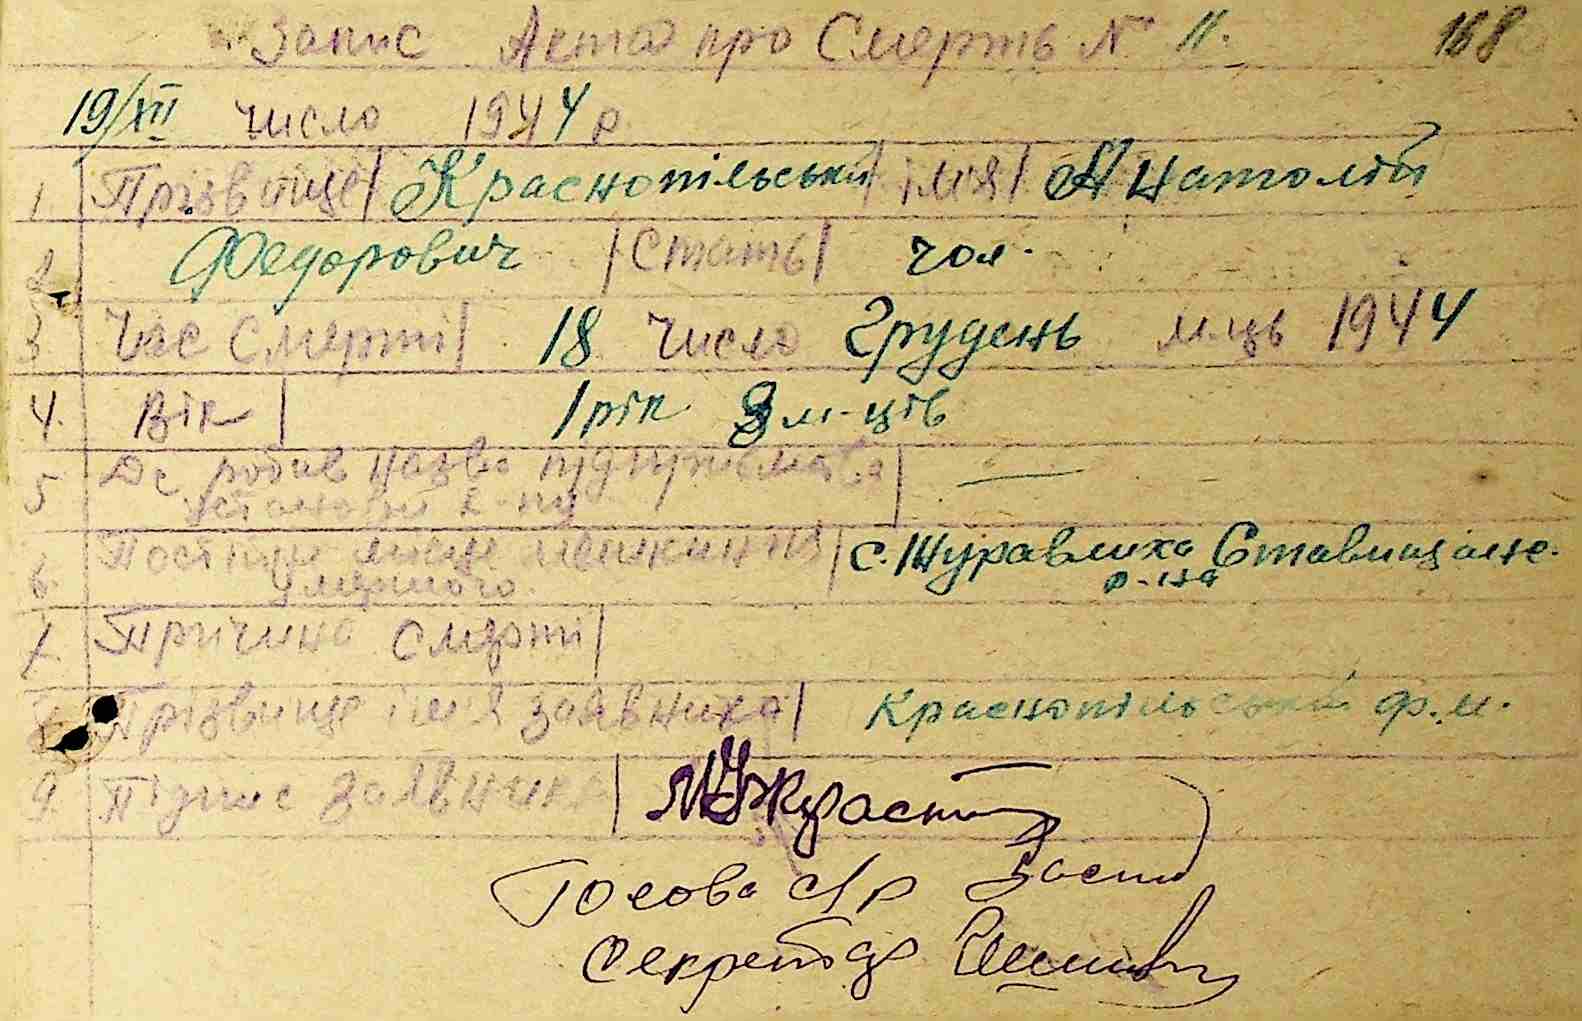 Запис Акта про Смерть № 11. 168
19/XII число 1944 р
1. Прізвище/ Краснопільський /імя/ Анатолій
2 Федорович /Стать/ чол.
3 Час Смерті/ 18 число Грудень м-ць 1944
4. Вік/ 1 рік 3 м-ців
5 Де робив назва підприємства
установи к-пу —
6. Постійне місце мешкання/ с. Журавлиха Ставищансь.
умершого. р-на
7. Причина смерті/
8. Прізвище імя заявника/ Краснопільський Ф.М.
9. Підпис Заявника/
Голова с/р
Секретар